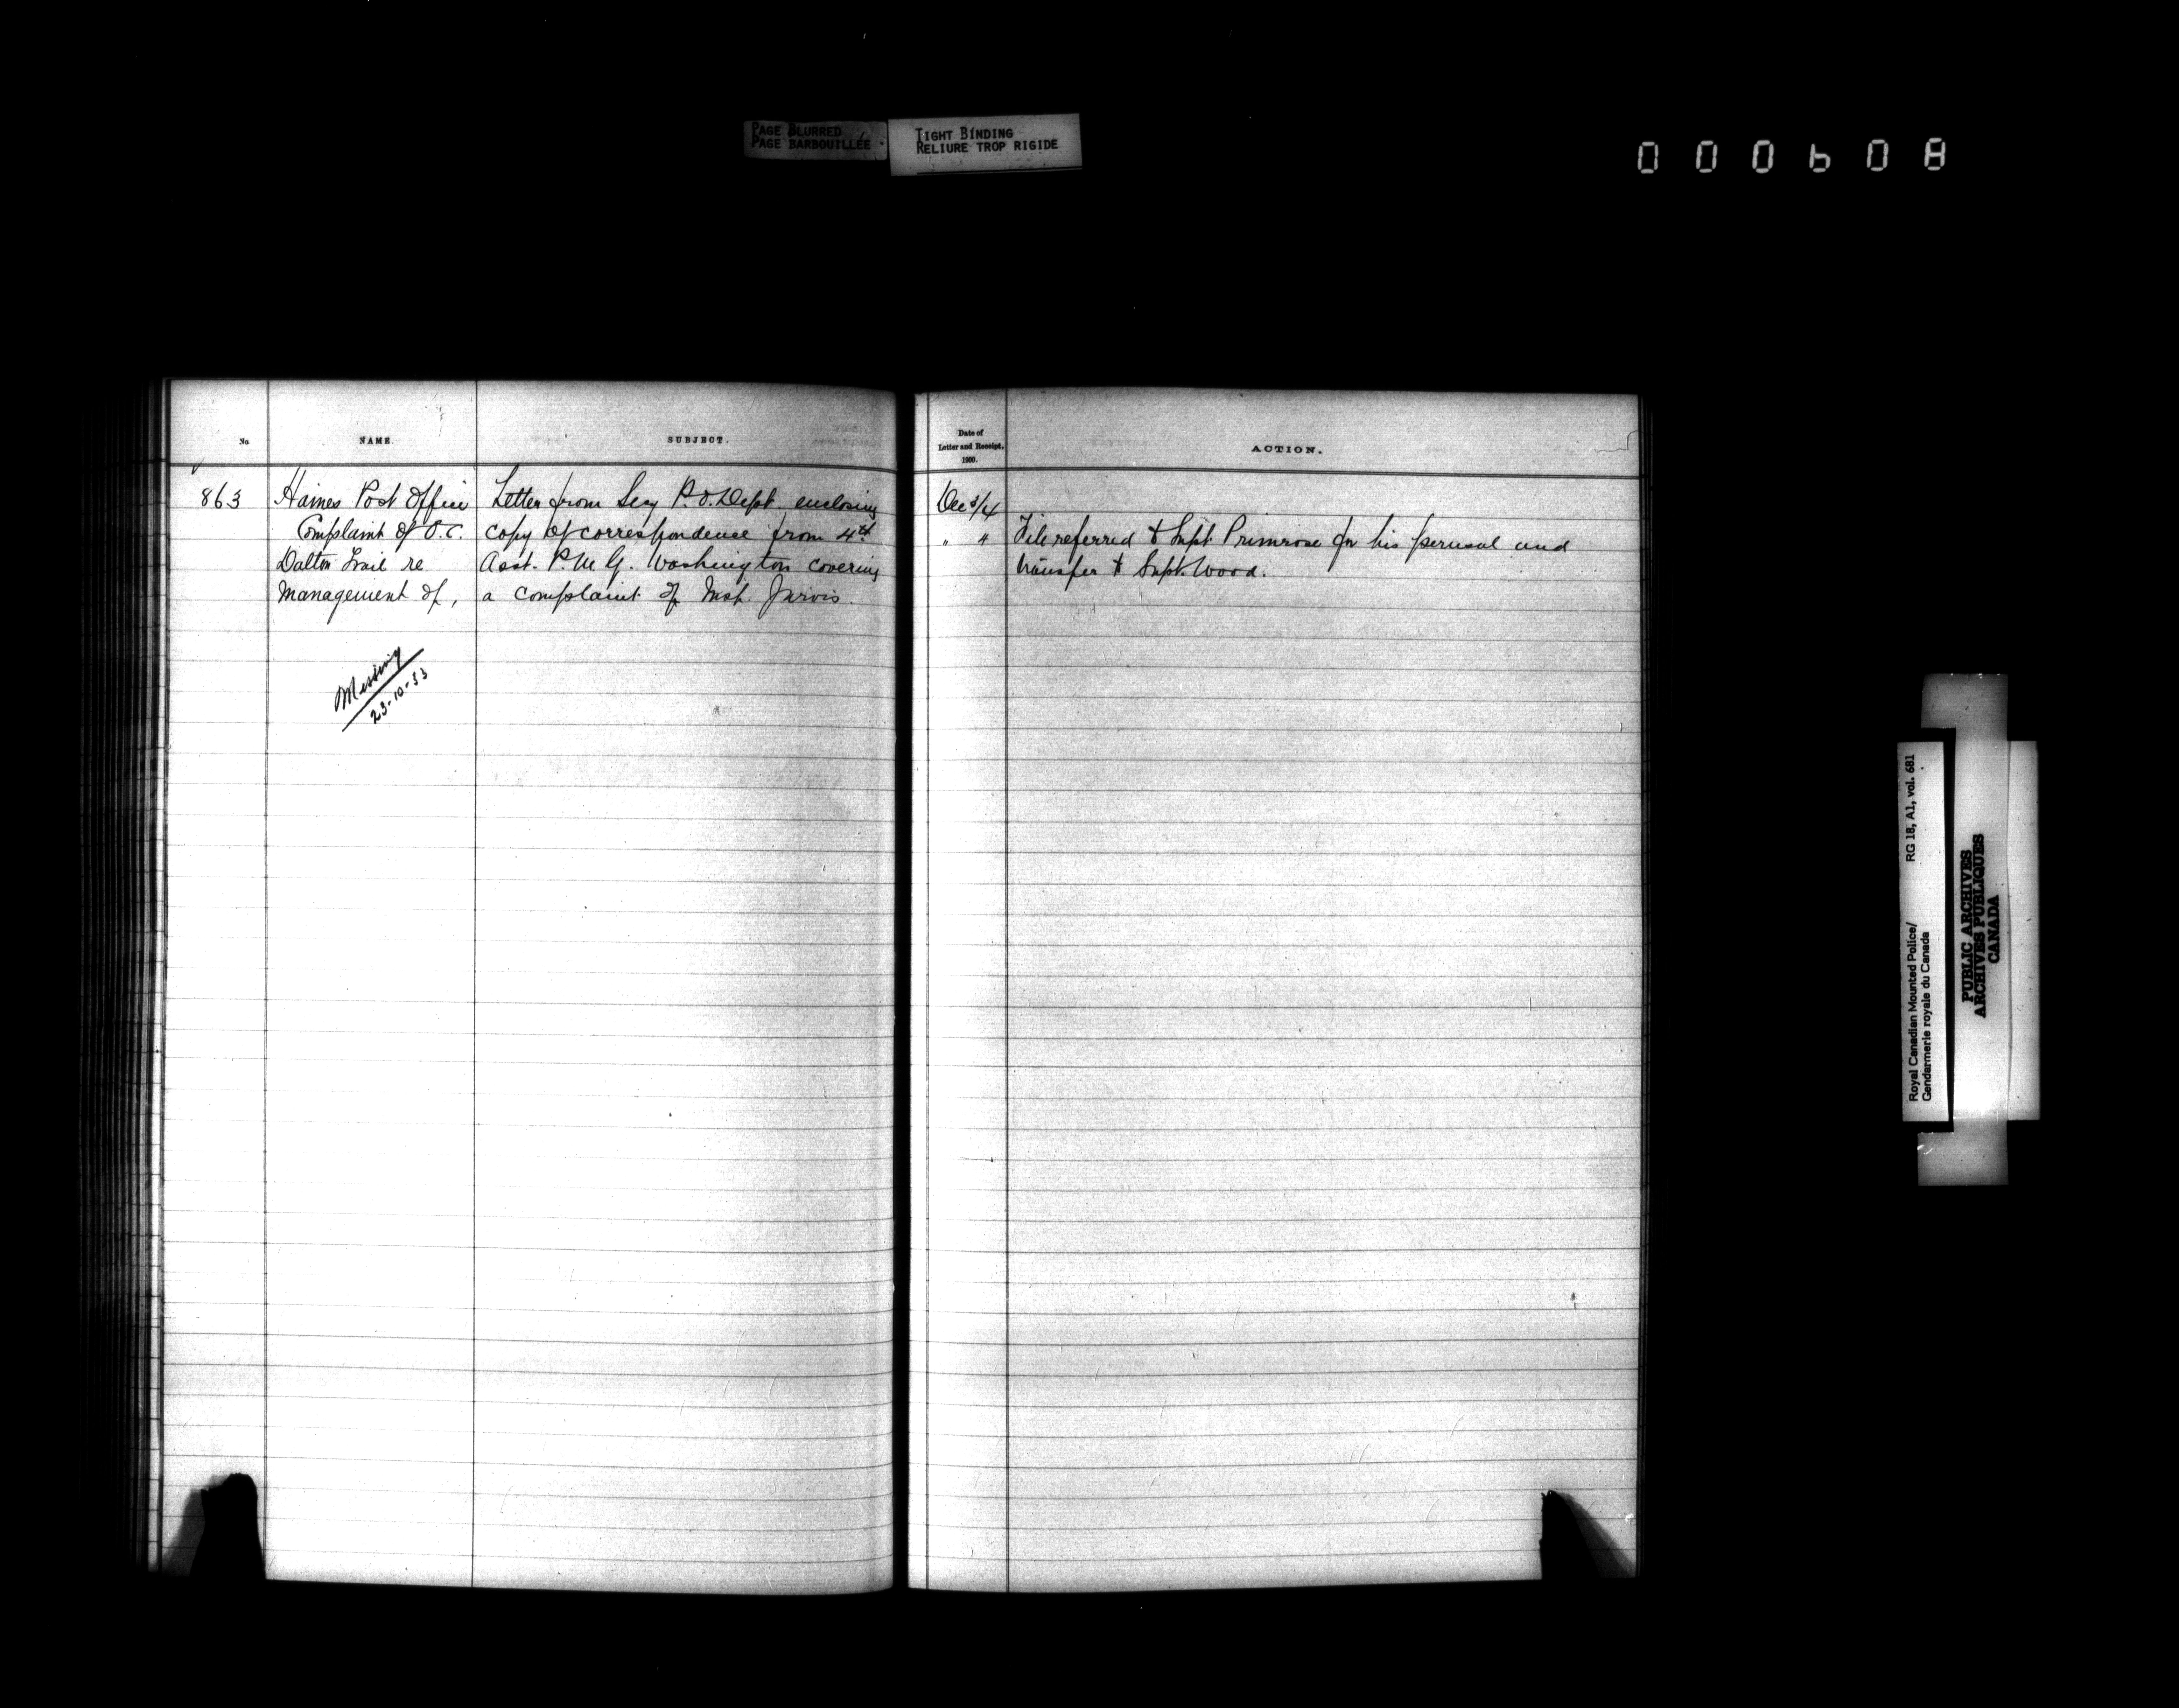 PAGE BLURRED
PAGE BARBOUILLÉE
TIGHT BINDING
RELIURE TROP RIGIDE
000608
No.
NAME.
SUBJECT.
863
Haines Post Office
Complaint of O.C.
Dalton Trail re
Management of,
Letter from Secy P.O. Dept enclosing
copy of correspondence from 4th
Asst. P.M.G. Washington covering
a complaint of Insp. Jarvis.
Missing
23-10-33
Date of
Letter and Receipt,
1900.
ACTION.
Dec 3/4
" 4
File referred to Supt Primrose for his perusal and
transfer to Supt. Wood.
Royal Canadian Mounted Police/
Gendarmerie royale du Canada
RG 18, A1, vol. 681
PUBLIC ARCHIVES
ARCHIVES PUBLIQUES
CANADA